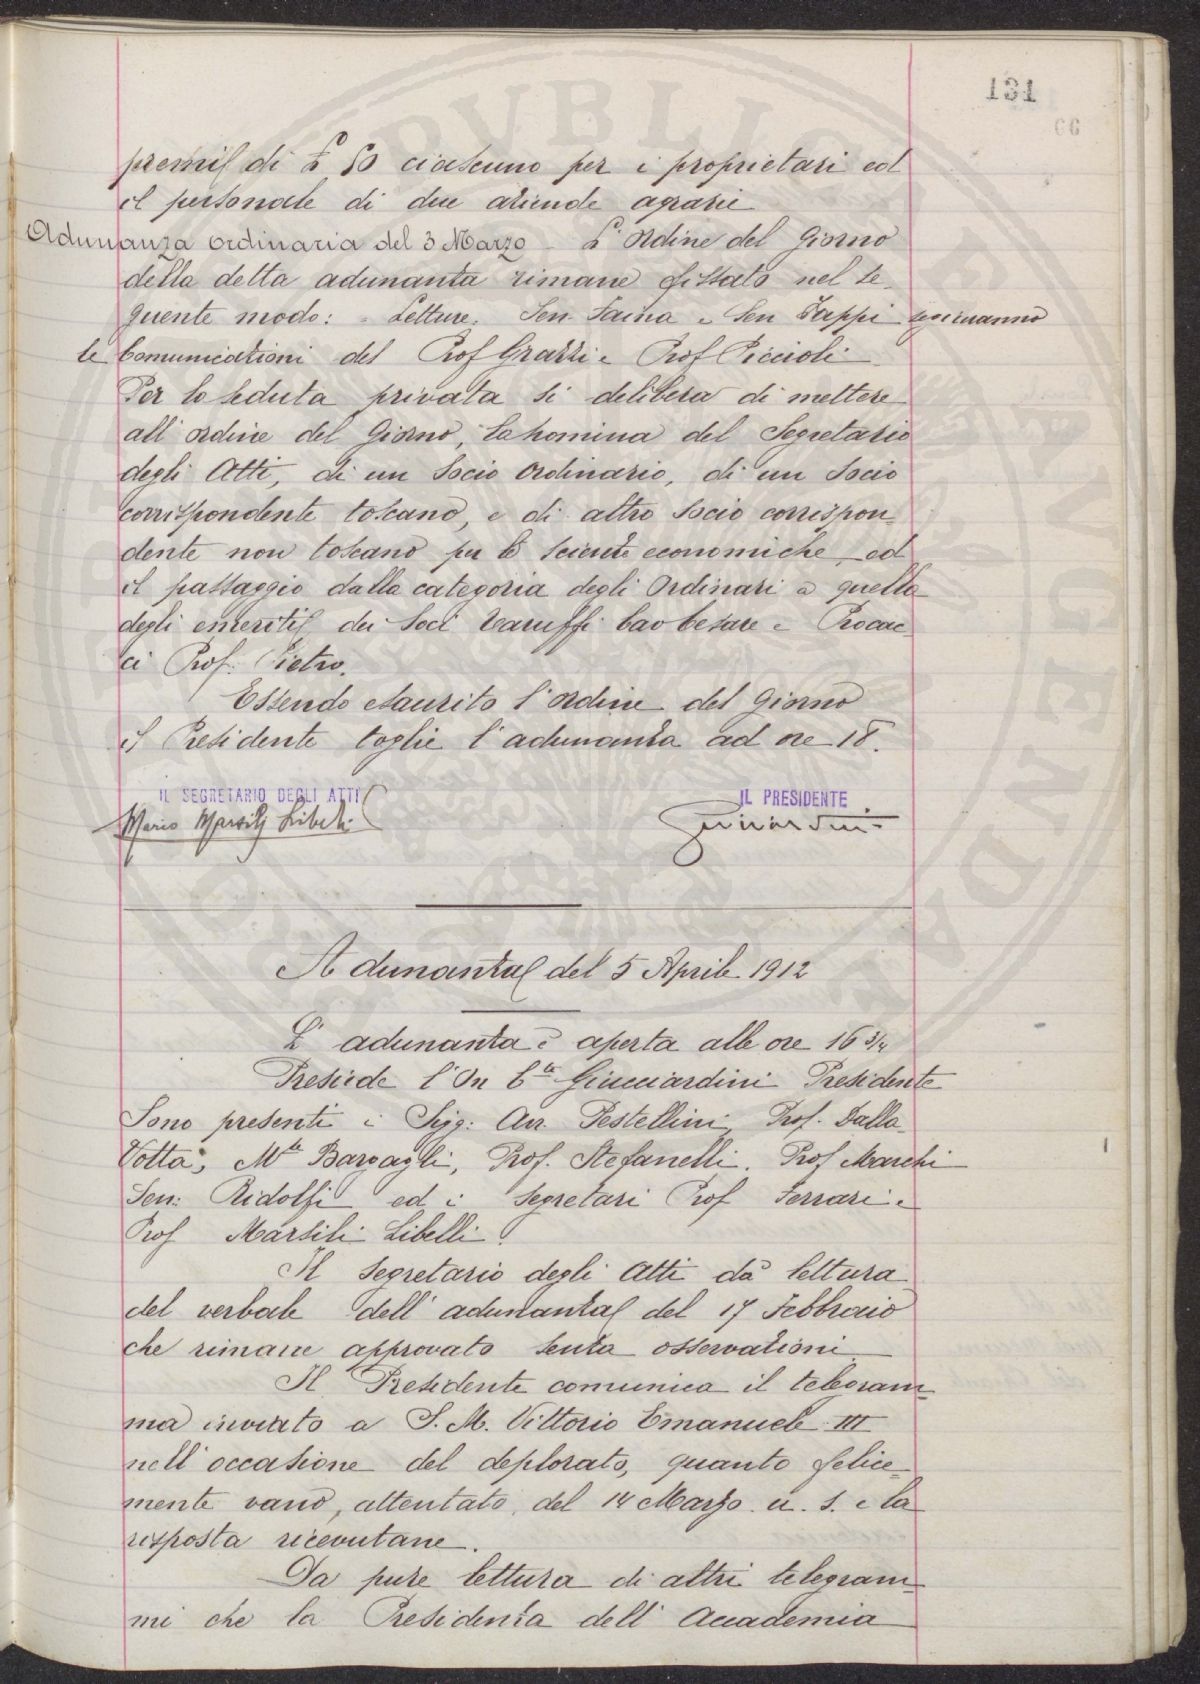 131
66
premii di £ 50 ciascuno per i proprietari ed
il personale di due aziende agrarie
Adunanza ordinaria del 3 Marzo - L'ordine del Giorno
della detta adunanza rimane fissato nel se-
guente modo: - Letture. Sen. Faina e Sen Pappi seguiranno
le Comunicazioni del Prof Grazzi e Prof Piccioli
Per la seduta privata si delibera di mettere
all'ordine del Giorno, la nomina del Segretario
degli Atti, di un Socio Ordinario, di un Socio
corrispondente toscano, e di altro Socio corrispon-
dente non toscano per le scienze economiche, ed
il passaggio dalla categoria degli Ordinari a quella
degli emeriti dei Soci Taruffi Cav Cesare e Procac
ci Prof. Pietro.
Essendo esaurito l'ordine del Giorno
il Presidente toglie l'adunanza ad ore 18.
IL SEGRETARIO DEGLI ATTI
IL PRESIDENTE
Mario Marsili Libelli
Guicciardini
Adunanza del 5 Aprile 1912
L'adunanza è aperta alle ore 16 3/4
Presiede l'On Cte Guicciardini Presidente
Sono presenti i Sigg: Avv. Pestellini, Prof. Dalla
Volta, Mse Bargagli, Prof. Stefanelli. Prof Marchi
Sen: Ridolfi ed i Segretari Prof Ferrari e
Prof Marsili Libelli.
Il Segretario degli Atti dà lettura
del verbale dell'adunanza del 17 Febbraio
che rimane approvato senza osservazioni
Il Presidente comunica il telegram-
ma inviato a S. M. Vittorio Emanuele III
nell'occasione del deplorato, quanto felice-
mente vano, attentato del 14 Marzo u. s. e la
risposta ricevutane.
Da pure lettura di altri telegram-
mi che la Presidenza dell'Accademia